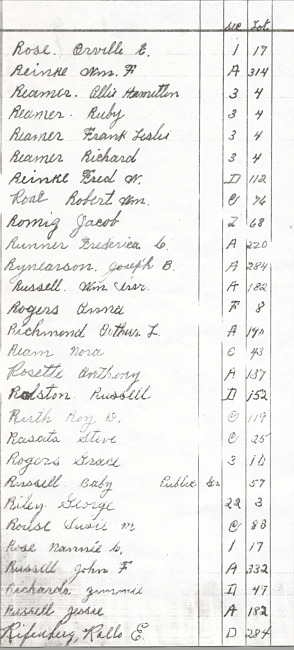 Sec Lot
Rose. Orville E. 1 17
Reinke Wm. F A 314
Reamer. Allie Hamilton 3 4
Reamer. Ruby 3 4
Reamer Frank Leslie 3 4
Reamer Richard 3 4
Reinke Fred W. D 112
Robert Wm. C 76
Romig Jacob 2 68
Runner Frederica C. A 220
Rynearson. Joseph B. A 284
Russell. Wm A 182
Rogers Anna F 8
Richmond Arthur L. A
Ream Nora C 43
Rosette Anthony A 137
Ralston Russell D 152
Ruth Roy D. C 119
Rasata Steve C 25
Rogers Grace 3 10
Russell Baby Public Gr 57
Riley George 22 3
Rouse Susie M C 88
Rose Nannie C. 1 17
Russell John F A 332
Richards D 47
Bissett Jessie A 182
Rifenberg, Rello E. D 284